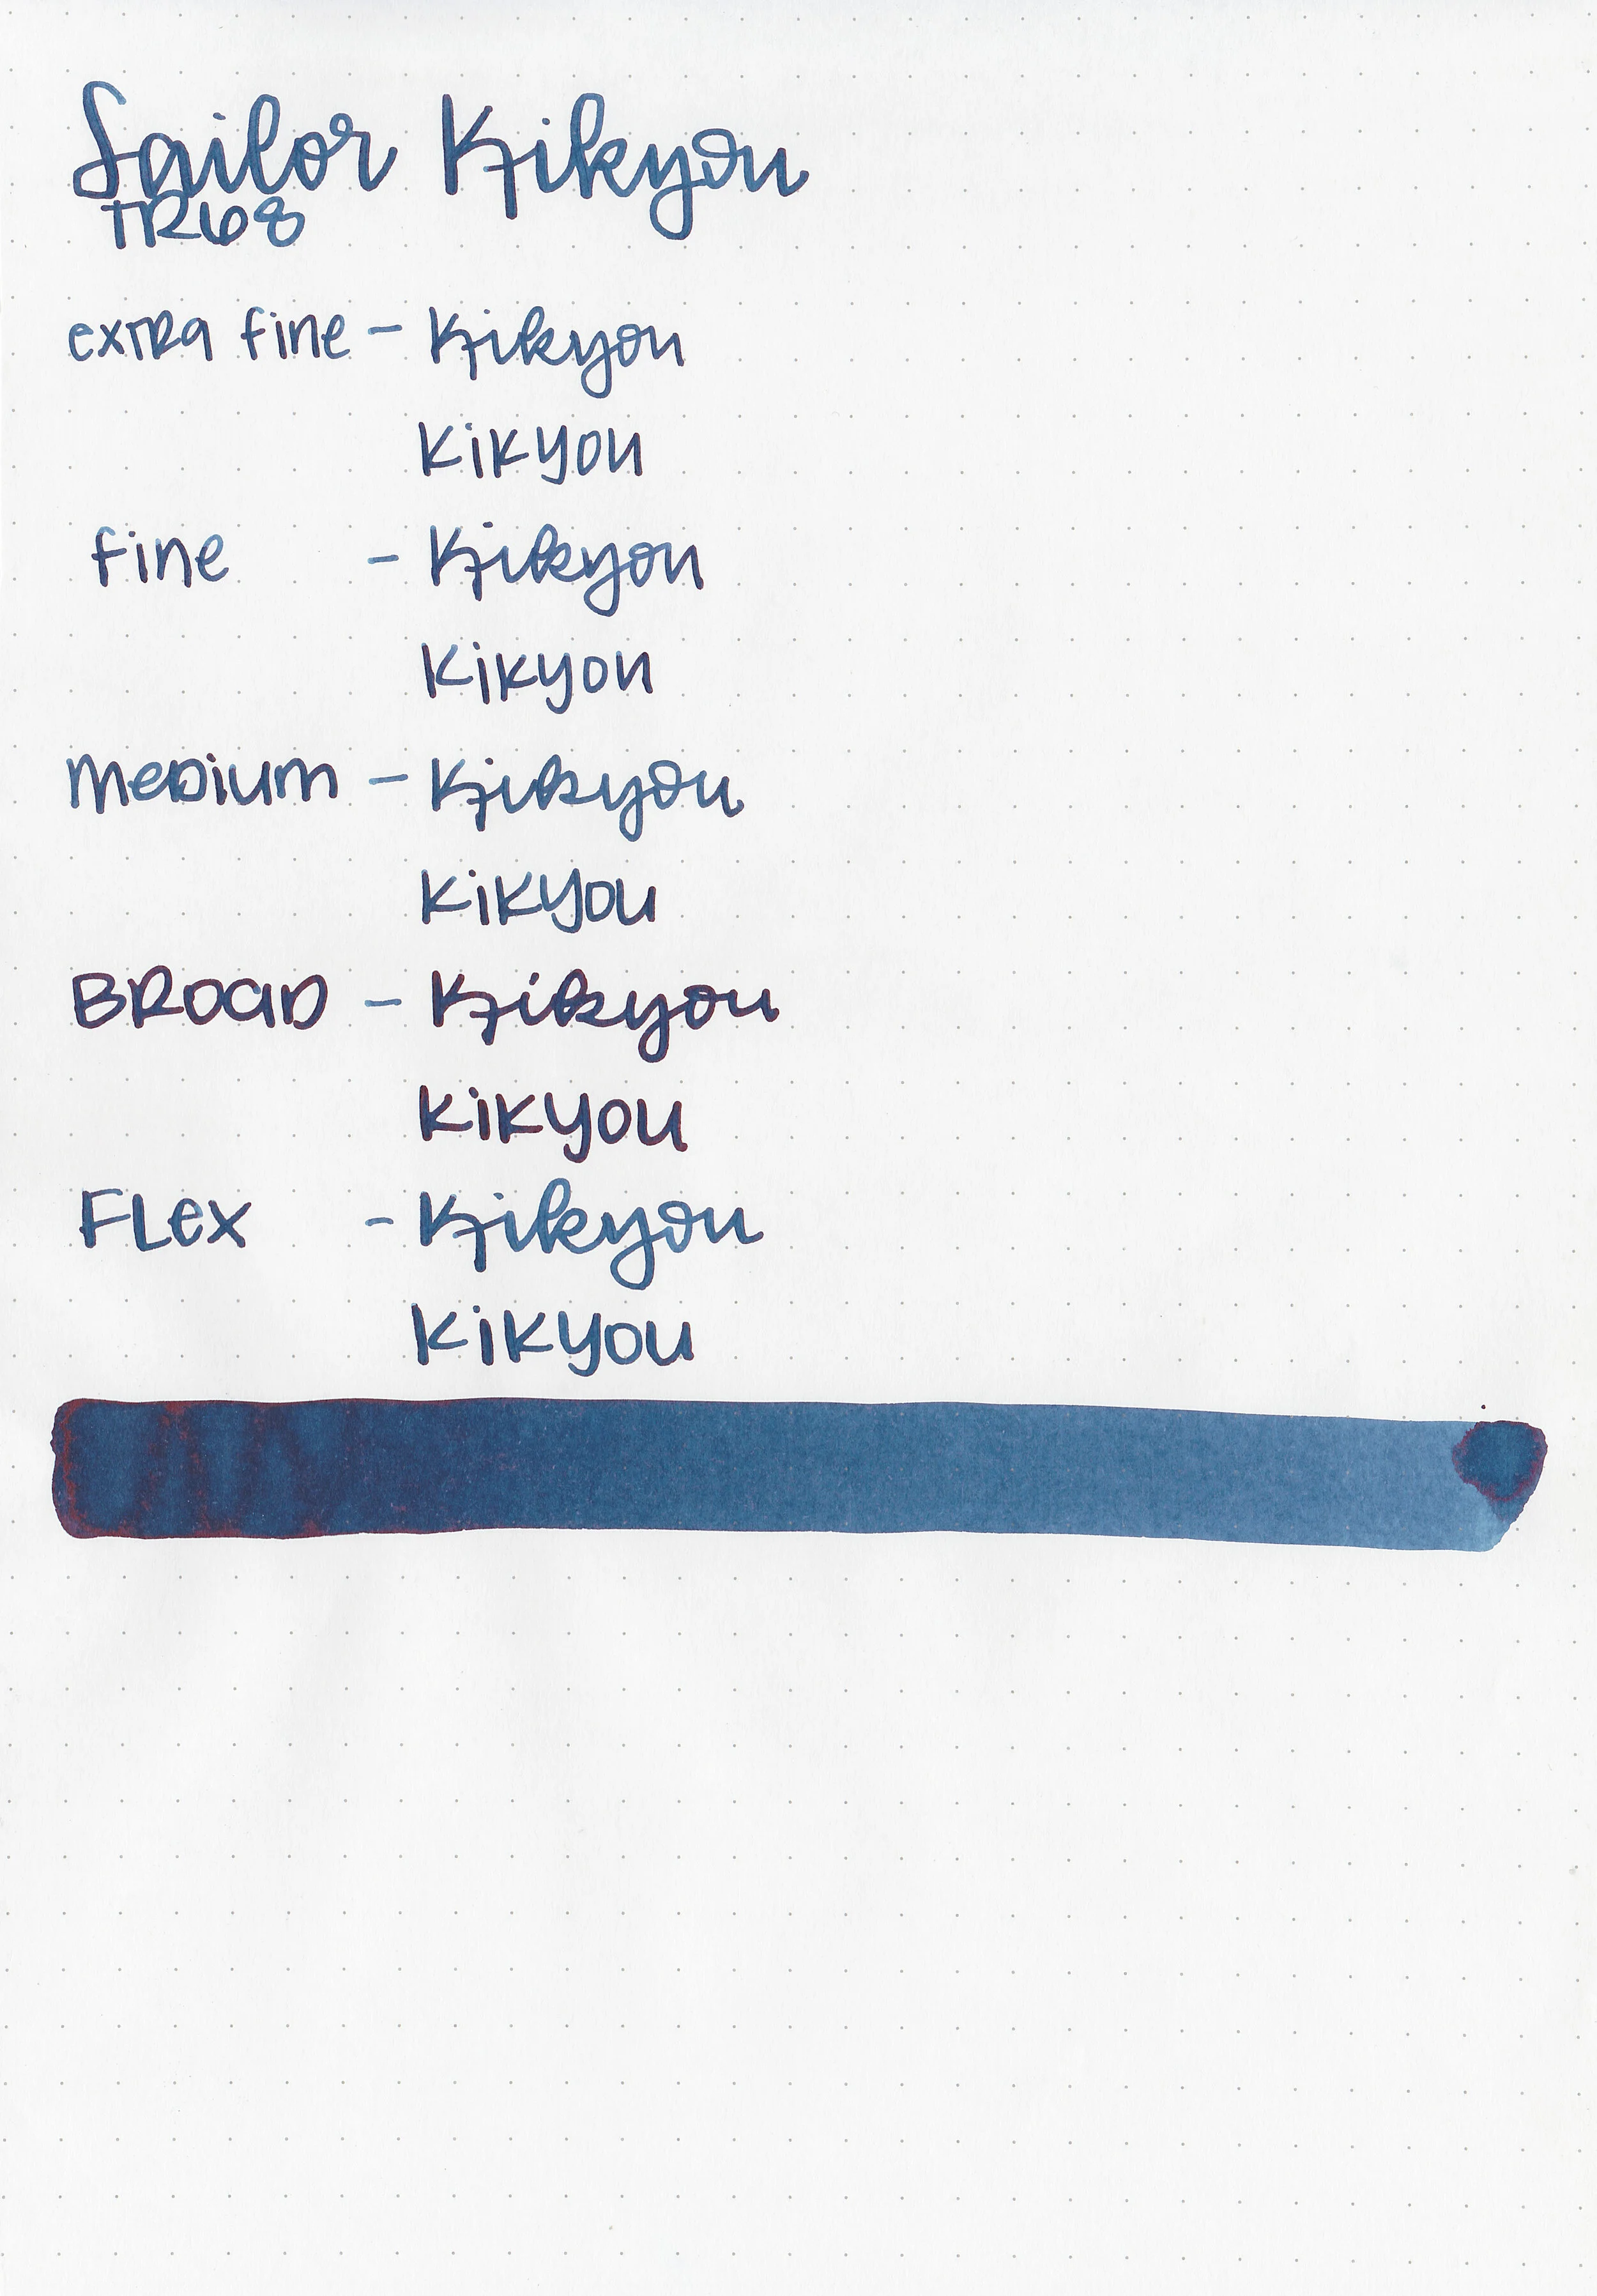 Sailor Kikyou
TR68
extra fine - Kikyou
Kikyou
fine - Kikyou
Kikyou
Medium - Kikyou
Kikyou
BROAD - Kikyou
Kikyou
FLex - Kikyou
Kikyou